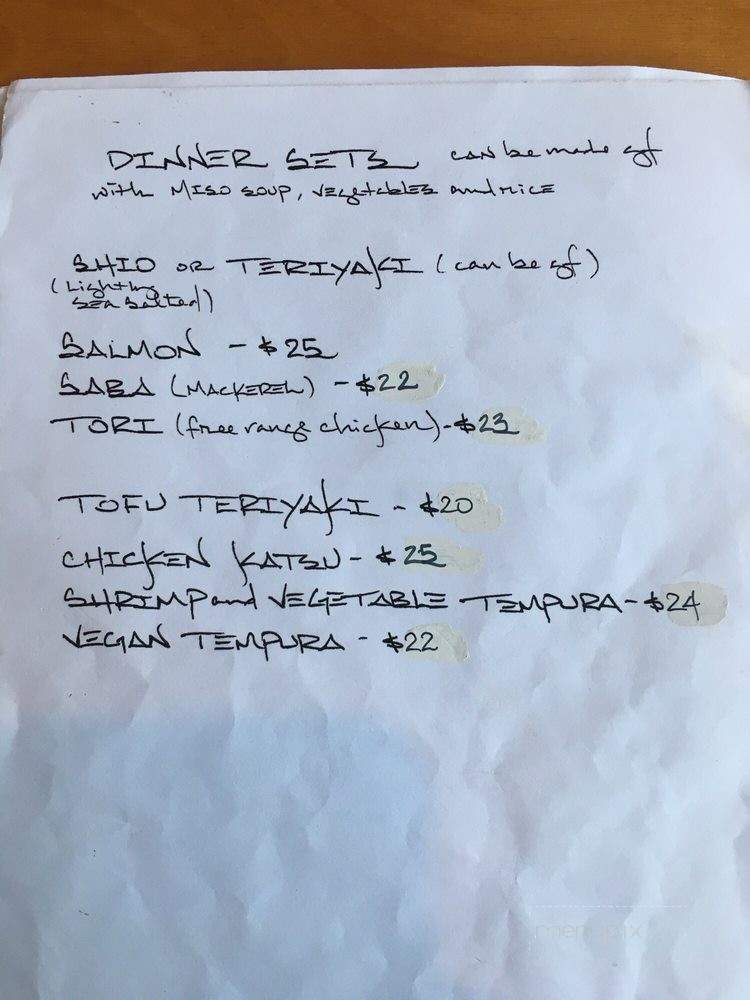 DINNER SETS can be made gf
with MISO SOUP, vegetables and rice
SHIO OR TERIYAKI (can be gf)
(Lightly
sea salted)
SALMON - $25
SABA (MACKEREL) - $22
TORI (free range chicken) - $23
TOFU TERIYAKI - $20
CHICKEN KATSU - $25
SHRIMP and VEGETABLE TEMPURA - $24
VEGAN TEMPURA - $22